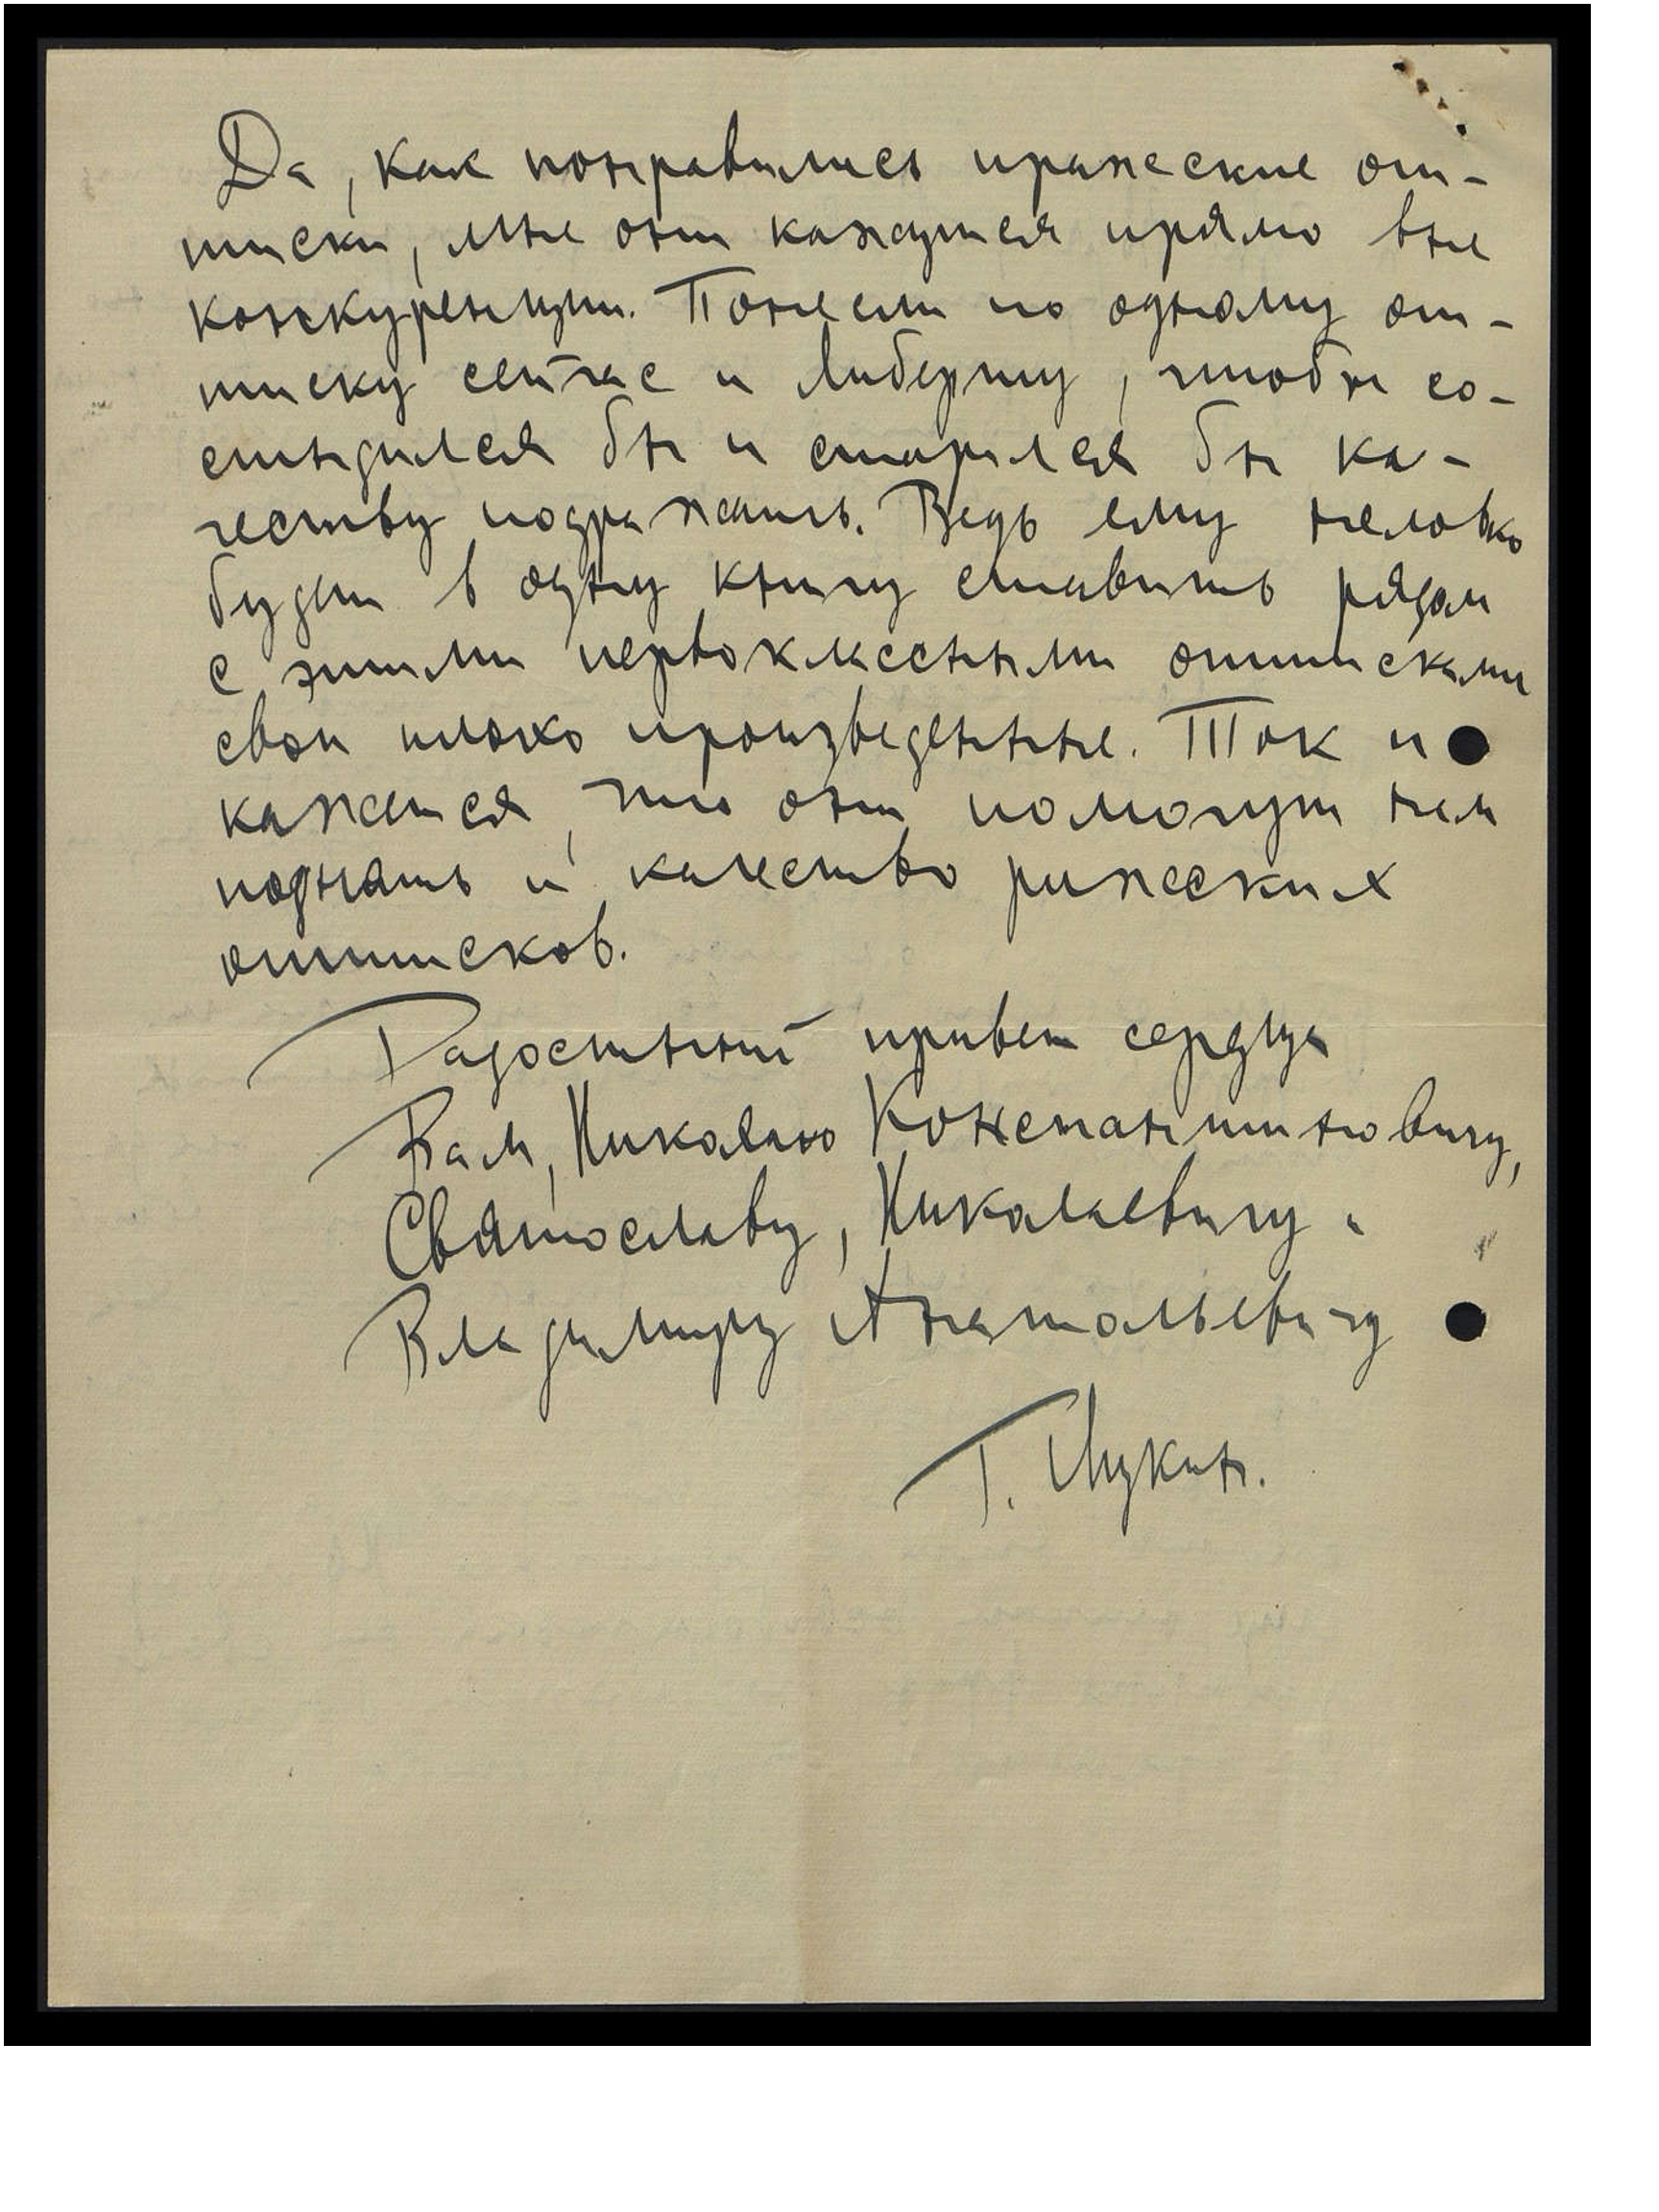 Да, как понравились пражские от-
тиски, мне они кажутся прямо вне
конкуренции. Понесем по одному от-
тиску сейчас и Либерту, чтобы со-
стыдился бы и старался бы ка-
честву подражать. Ведь ему неловко
будет в одну книгу ставить рядом
с этими первоклассными оттисками
свои плохо произведенные. Так и
кажется, что они помогут нам
поднять и качество рижских
оттисков.
Радостный привет сердца
Вам, Николаю Константиновичу,
Святославу, Николаевичу и
Владимиру Анатольевичу
Г. Лукин.